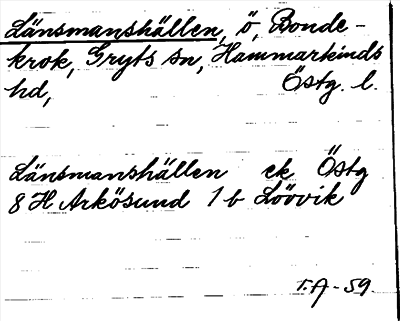 Länsmanshällen, ö, Bonde-
krok, Gryts sn, Hammarkinds
hd, Östg. l.
Länsmanshällen ek Östg
8 H Arkösund 1 b Lövvik
T.A-59.